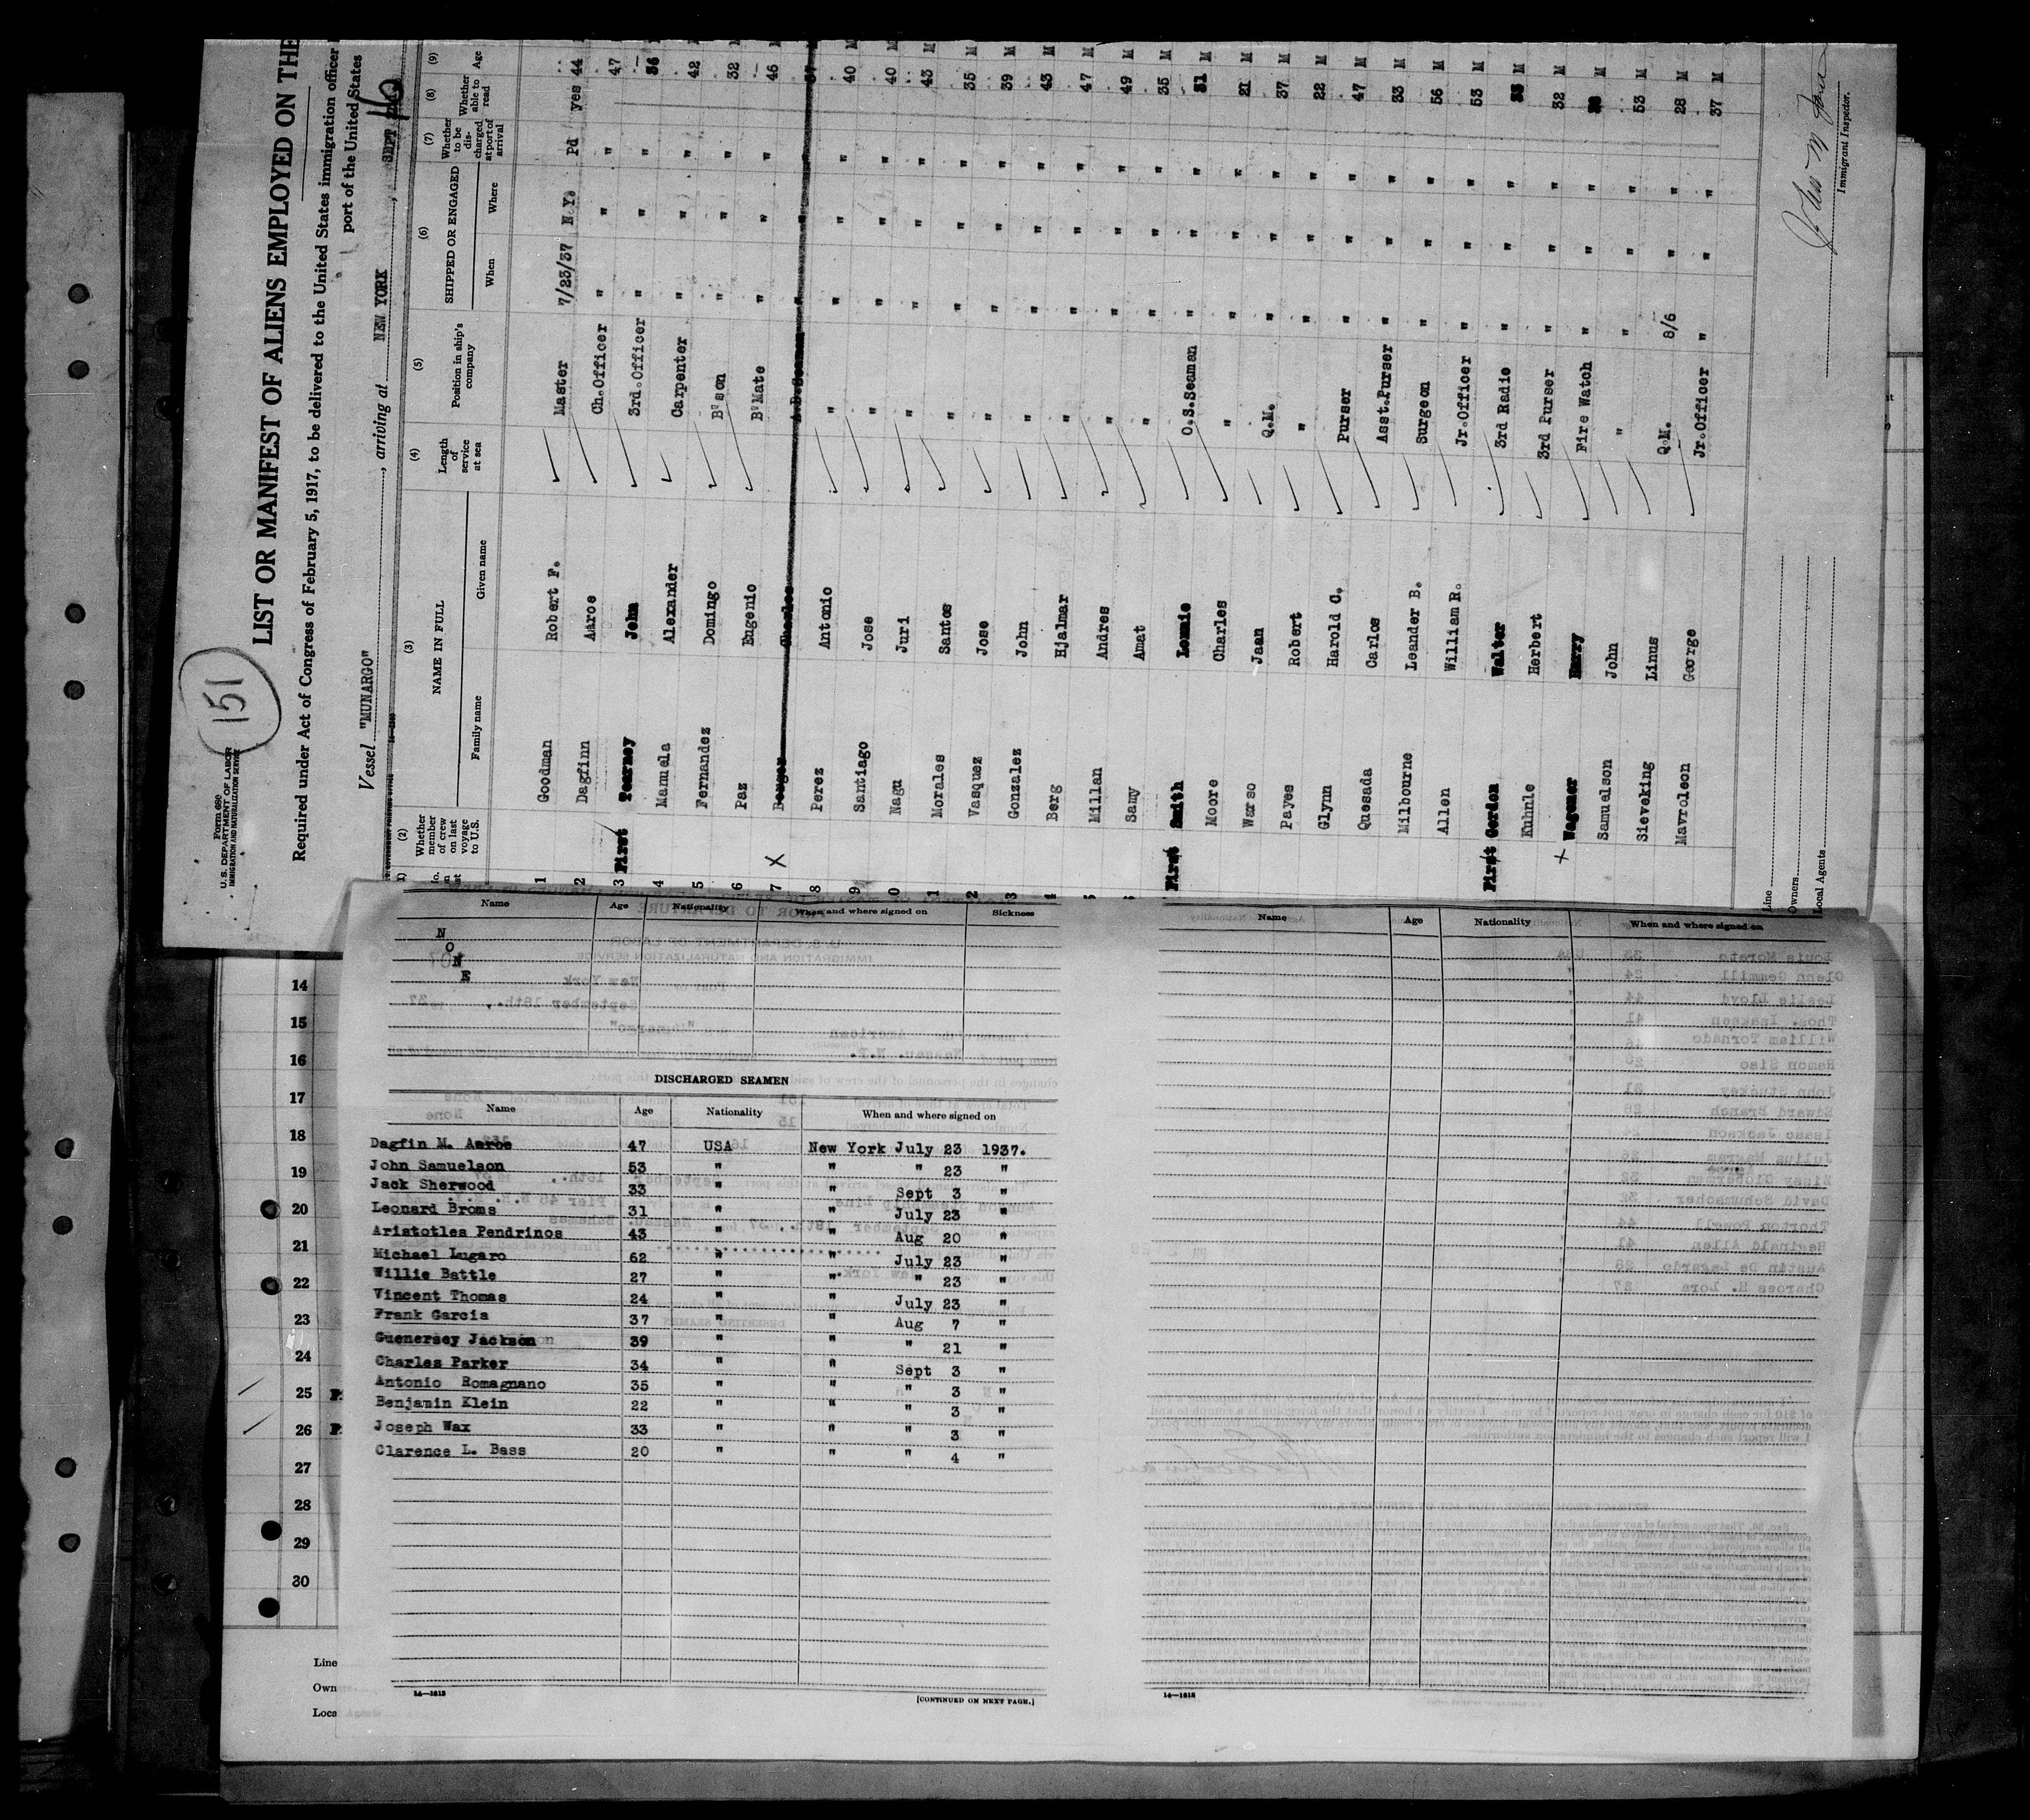 Form 680
U. S. DEPARTMENT OF LABOR
IMMIGRATION AND NATURALIZATION SERVICE
151
LIST OR MANIFEST OF ALIENS EMPLOYED ON THE
Required under Act of Congress of February 5, 1917, to be delivered to the United States immigration officer
port of the United States
Vessel "MUNARGO", arriving at NEW YORK, SEPT
(2) (3) (4) (5) (6) (7) (8) (9)
Whether member of crew on last voyage to U.S. NAME IN FULL Length of service at sea Position in ship's company SHIPPED OR ENGAGED Whether to be discharged at port of arrival Whether able to read Age
Family name Given name When Where
1 Goodman Robert F. Master 7/23/37 N Y. Pd yes 44
2 Dagfinn Aaroe Ch.Officer " " " 47
3 First Tearney John 3rd.Officer " " " 36
4 Mamuela Alexander Carpenter " " " 42
5 Fernandez Domingo B'son " " " 32
6 Paz Eugenio B'Mate " " " 46
7 X Charles A.B.Seaman " " "
8 Perez Antonio " " " " 40 M
9 Santiago Jose " " " " 40 M
0 Nagu Juri " " " " 43 M
1 Morales Santos " " " " 35 M
2 Vasquez Jose " " " " 39 M
3 Gonzalez John " " " " 43 M
4 Berg Hjalmar " " " " 47 M
5 Millan Andres " " " " 49 M
Samy Amat " " " " 35 M
First Smith Lonnie O.S.Seaman " " " 31 M
Moore Charles " " " " 21 M
Warso Jaan Q.M. " " " 37 M
Payes Robert " " " " 22 M
Glynn Harold C. Purser " " " 47 M
Quesada Carlos Asst.Purser " " " 33 M
Milbourne Leander B. Surgeon " " " 56 M
Allen William R. Jr.Officer " " " 53 M
First Gordon Walter 3rd Radio " " " M
Kuhnle Herbert 3rd Purser " " " 32 M
+ Wagener Harry Fire Watch " " " M
Samuelson John " " " " 53 M
Sieveking Linus Q.M. 8/6 " " 28 M
Mavroleon George Jr.Officer " " " 37 M
Line
Owners
Local Agents
Immigrant Inspector.
Name Age Nationality When and where signed on Sickness
N
O
N
E
DISCHARGED SEAMEN
Name Age Nationality When and where signed on
Dagfin M. Aaroe 47 USA New York July 23 1937.
John Samuelson 53 " " " 23 "
Jack Sherwood 33 " " Sept 3 "
Leonard Broms 31 " " July 23 "
Aristotles Pendrinos 43 " " Aug 20 "
Michael Lugaro 62 " " July 23 "
Willie Battle 27 " " " 23 "
Vincent Thomas 24 " " July 23 "
Frank Garcia 37 " " Aug 7 "
Guenersey Jackson 39 " " " 21 "
Charles Parker 34 " " Sept 3 "
Antonio Romagnano 35 " " " 3 "
Benjamin Klein 22 " " " 3 "
Joseph Wax 33 " " " 3 "
Clarence L. Bass 20 " " " 4 "
14—1613
[CONTINUED ON NEXT PAGE.]
Name Age Nationality When and where signed on
14—1613
14
15
16
17
18
19
20
21
22
23
24
25
26
27
28
29
30
Line
Own
Loca